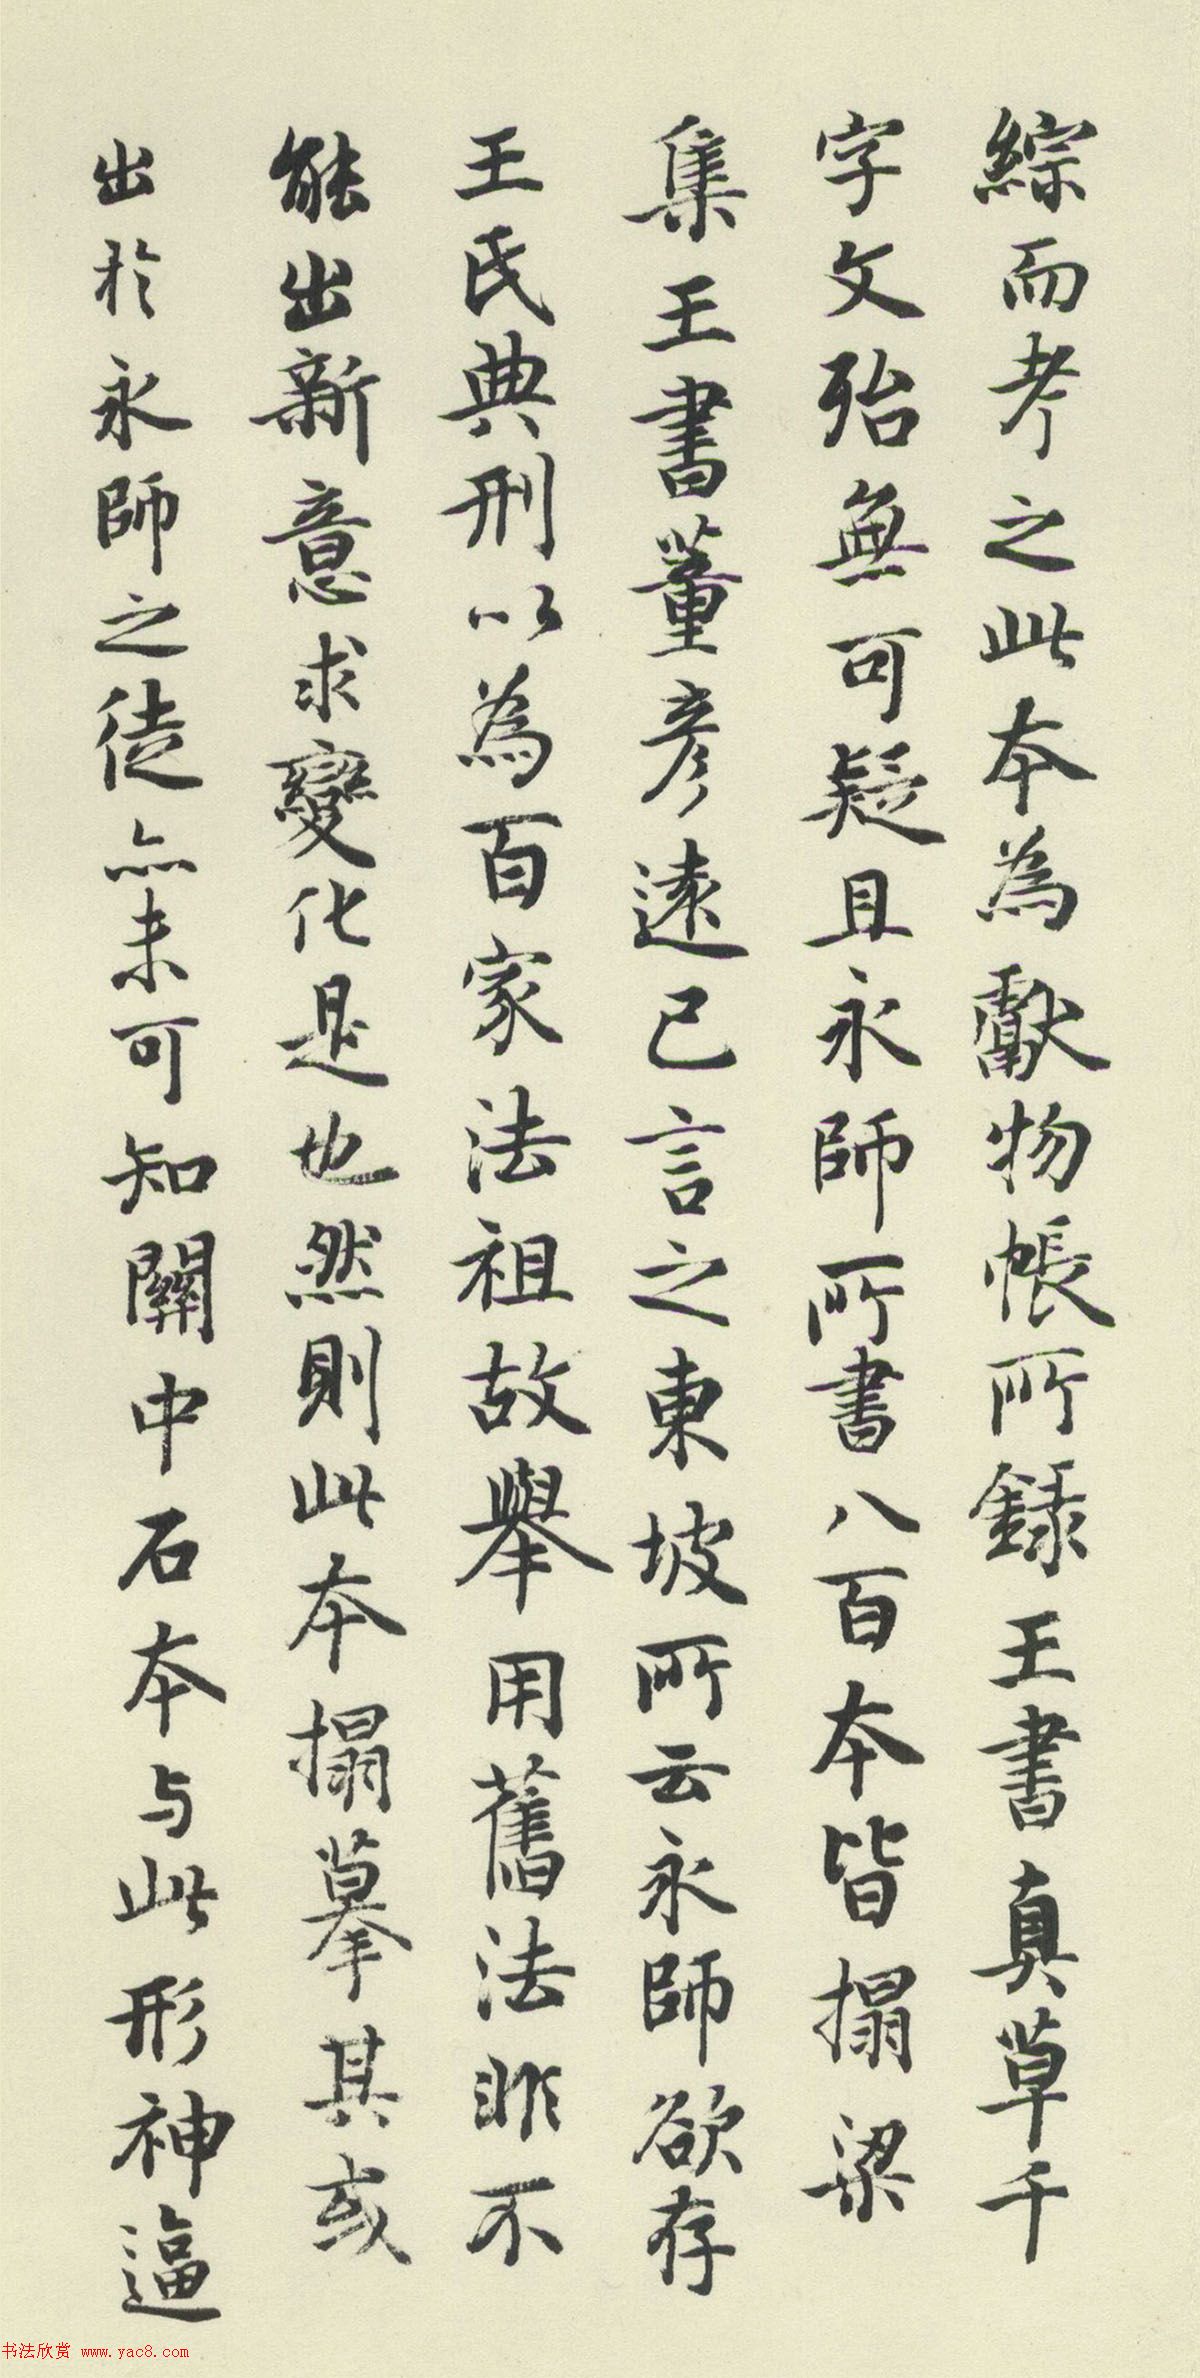 綜而考之此本為獻物帳所錄王書真草千
字文殆無可疑且永師所書八百本皆搨梁
集王書董彥遠已言之東坡所云永師欲存
王氏典刑以為百家法祖故舉用舊法非不
能出新意求變化是也然則此本搨摹其或
出於永師之徒亦未可知關中石本与此形神逼
书法欣赏 www.yac8.com